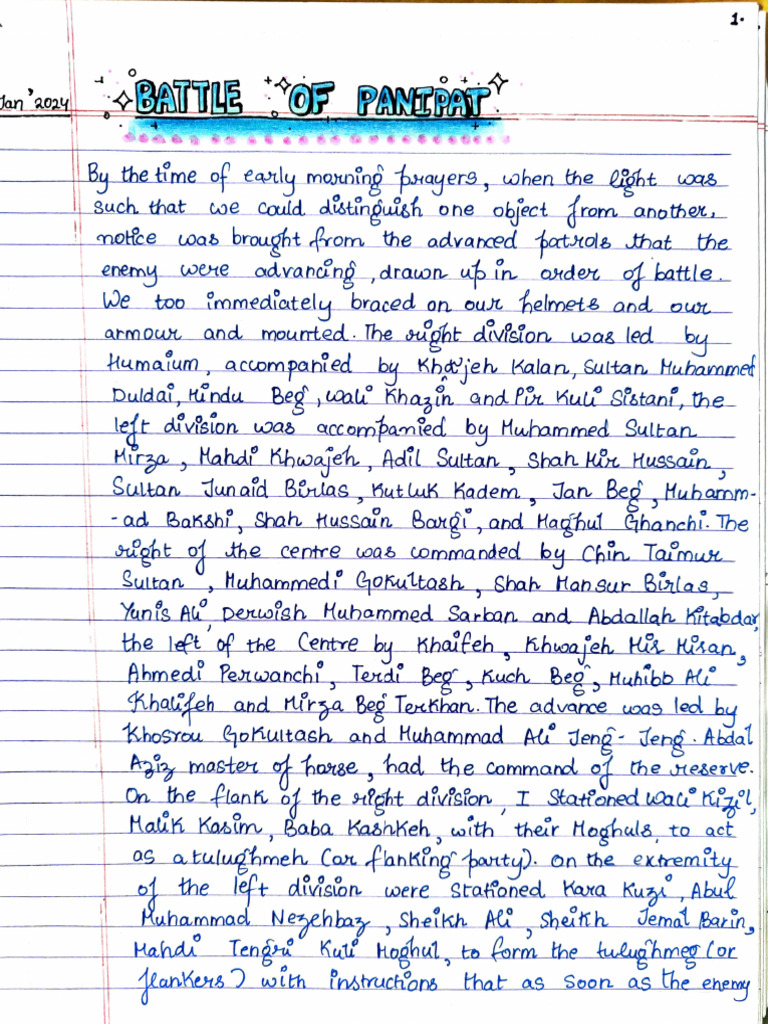 1.
Jan '2024
BATTLE OF PANIPAT
By the time of early morning prayers, when the light was
such that we could distinguish one object from another,
notice was brought from the advanced patrols that the
enemy were advancing, drawn up in order of battle.
We too immediately braced on our helmets and our
armour and mounted. The right division was led by
Humaium, accompanied by Kha'jeh Kalan, Sultan Muhammed
Duldai, Hindu Beg, Wali Khazin and Pir Kuli Sistani, the
left division was accompanied by Muhammed Sultan
Mirza, Mahdi Khwajeh, Adil Sultan, Shah Mir Hussain,
Sultan Junaid Birlas, Kutluk Kadem, Jan Beg, Muhamm-
-ad Bakshi, Shah Hussain Bargi, and Maghul Ghanchi. The
right of the centre was commanded by Chin Taimur
Sultan, Muhammedi Gokultash, Shah Mansur Birlas,
Yunis Ali, Derwish Muhammed Sarban and Abdallah Kitabdar,
the left of the Centre by Khaifeh, Khwajeh Mir Miran,
Ahmedi Perwanchi, Terdi Beg, Kuch Beg, Muhibb Ali
Khalifeh and Mirza Beg Terkhan. The advance was led by
Khosrou Gokultash and Muhammad Ali Jeng-Jeng. Abdal
Aziz master of horse, had the command of the reserve.
On the flank of the right division, I Stationed Wali Kizil,
Malik Kasim, Baba Kashkeh, with their Moghuls, to act
as a tulughmeh (or flanking party). On the extremity
of the left division were stationed Kara Kuzi, Abul
Muhammad Nezehbaz, Sheikh Ali, Sheikh Jemal Barin,
Mahdi Tengri Kuli Moghul, to form the tulughmeg (or
flankers) with instructions that as soon as the enemy